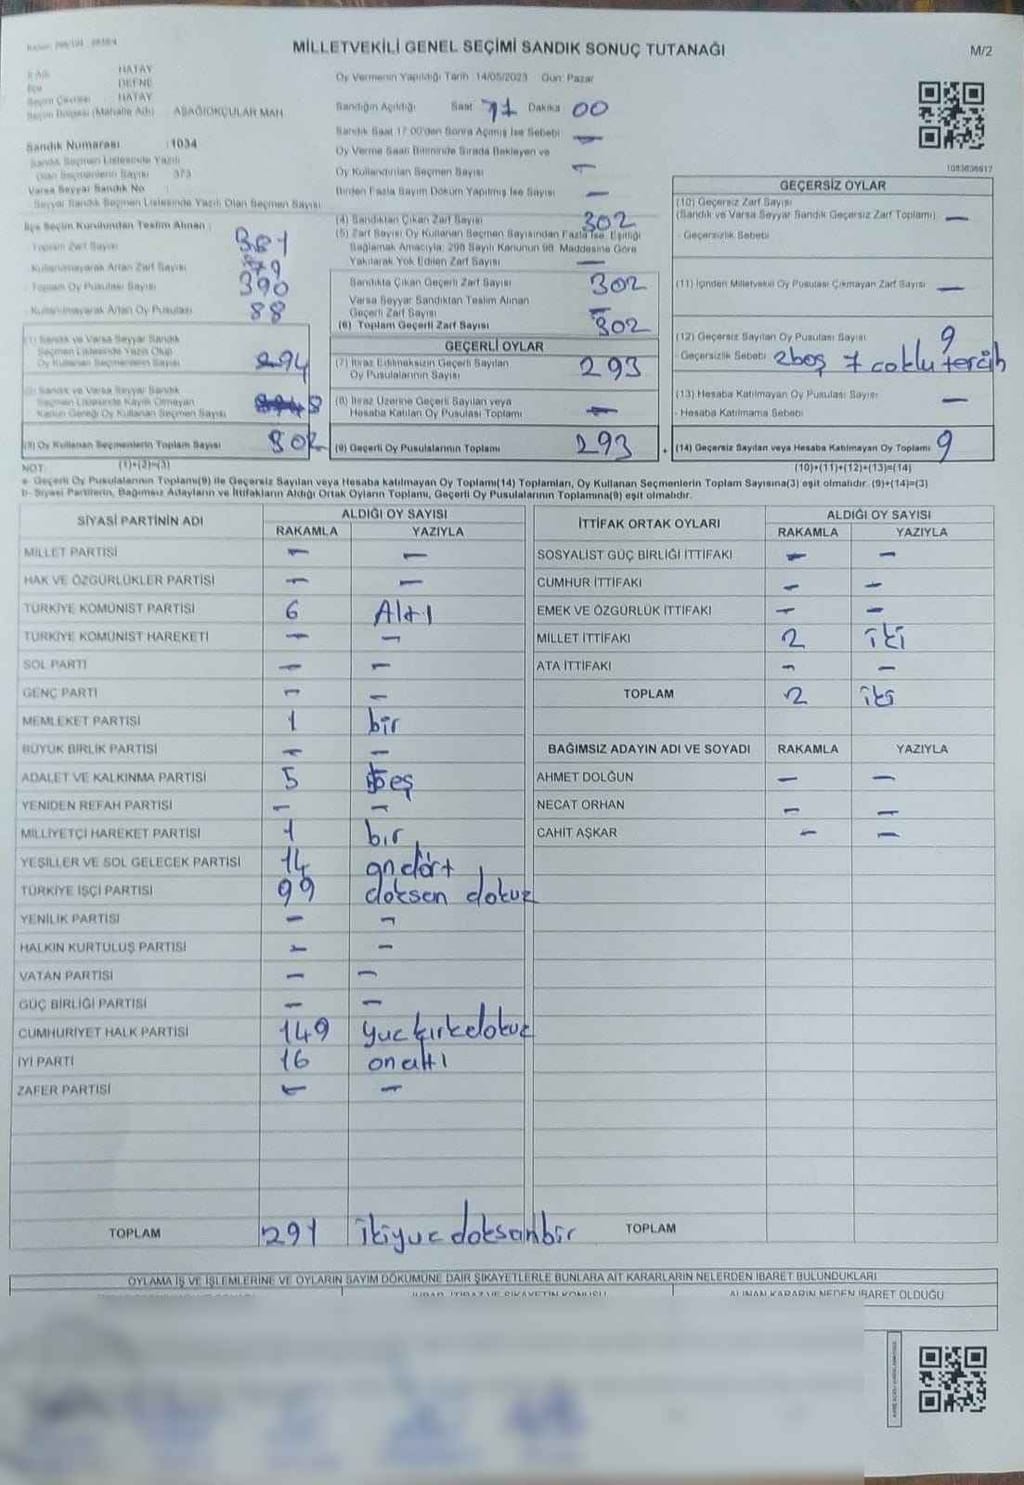 MİLLETVEKİLİ GENEL SEÇİMİ SANDIK SONUÇ TUTANAĞI
M/2
HATAY
DEFNE
HATAY
Seçim Bölgesi (Mahalle Adı) AŞAĞIOKÇULAR MAH.
Oy Vermenin Yapıldığı Tarih :14/05/2023 Gün: Pazar
Sandığın Açıldığı Saat 17 Dakika 00
Sandık Saat 17:00'den Sonra Açılmış İse Sebebi —
Oy Verme Saati Bitiminde Sırada Bekleyen ve
Oy Kullandırılan Seçmen Sayısı —
Birden Fazla Sayım Döküm Yapılmış İse Sayısı —
Sandık Numarası :1034
Sandık Seçmen Listesinde Yazılı
Olan Seçmenlerin Sayısı : 373
Varsa Seyyar Sandık No :
Seyyar Sandık Seçmen Listesinde Yazılı Olan Seçmen Sayısı
İlçe Seçim Kurulundan Teslim Alınan :
Toplam Zarf Sayısı 381
Kullanılmayarak Artan Zarf Sayısı 79
Toplam Oy Pusulası Sayısı 390
Kullanılmayarak Artan Oy Pusulası 88
(1) Sandık ve Varsa Seyyar Sandık
Seçmen Listesinde Yazılı Olup
Oy Kullanan Seçmenlerin Sayısı 294
(2) Sandık ve Varsa Seyyar Sandık
Seçmen Listesinde Kaydı Olmayan
Kanun Gereği Oy Kullanan Seçmen Sayısı 8
(3) Oy Kullanan Seçmenlerin Toplam Sayısı 302
(1)+(2)=(3)
(4) Sandıktan Çıkan Zarf Sayısı 302
(5) Zarf Sayısı Oy Kullanan Seçmen Sayısından Fazla İse, Eşitliği
Sağlamak Amacıyla, 298 Sayılı Kanunun 98. Maddesine Göre
Yakılarak Yok Edilen Zarf Sayısı —
Sandıkta Çıkan Geçerli Zarf Sayısı 302
Varsa Seyyar Sandıktan Teslim Alınan
Geçerli Zarf Sayısı —
(6) Toplam Geçerli Zarf Sayısı 302
GEÇERLİ OYLAR
(7) İtiraz Edilmeksizin Geçerli Sayılan
Oy Pusulalarının Sayısı 293
(8) İtiraz Üzerine Geçerli Sayılan veya
Hesaba Katılan Oy Pusulası Toplamı —
(9) Geçerli Oy Pusulalarının Toplamı 293
1083636917
GEÇERSİZ OYLAR
(10) Geçersiz Zarf Sayısı
(Sandık ve Varsa Seyyar Sandık Geçersiz Zarf Toplamı) —
- Geçersizlik Sebebi
(11) İçinden Milletvekili Oy Pusulası Çıkmayan Zarf Sayısı —
(12) Geçersiz Sayılan Oy Pusulası Sayısı 9
- Geçersizlik Sebebi 2boş 7 çoklu tercih
(13) Hesaba Katılmayan Oy Pusulası Sayısı —
- Hesaba Katılmama Sebebi
+ (14) Geçersiz Sayılan veya Hesaba Katılmayan Oy Toplamı 9
(10)+(11)+(12)+(13)=(14)
NOT:
a- Geçerli Oy Pusulalarının Toplamı(9) ile Geçersiz Sayılan veya Hesaba katılmayan Oy Toplamı(14) Toplamları, Oy Kullanan Seçmenlerin Toplam Sayısına(3) eşit olmalıdır. (9)+(14)=(3)
b- Siyasi Partilerin, Bağımsız Adayların ve İttifakların Aldığı Ortak Oyların Toplamı, Geçerli Oy Pusulalarının Toplamına(9) eşit olmalıdır.
SİYASİ PARTİNİN ADI ALDIĞI OY SAYISI
RAKAMLA YAZIYLA
MİLLET PARTİSİ — —
HAK VE ÖZGÜRLÜKLER PARTİSİ — —
TÜRKİYE KOMÜNİST PARTİSİ 6 Altı
TÜRKİYE KOMÜNİST HAREKETİ — —
SOL PARTİ — —
GENÇ PARTİ — —
MEMLEKET PARTİSİ 1 bir
BÜYÜK BİRLİK PARTİSİ — —
ADALET VE KALKINMA PARTİSİ 5 beş
YENİDEN REFAH PARTİSİ — —
MİLLİYETÇİ HAREKET PARTİSİ 1 bır
YEŞİLLER VE SOL GELECEK PARTİSİ 14 on dört
TÜRKİYE İŞÇİ PARTİSİ 99 doksan dokuz
YENİLİK PARTİSİ — —
HALKIN KURTULUŞ PARTİSİ — —
VATAN PARTİSİ — —
GÜÇ BİRLİĞİ PARTİSİ — —
CUMHURİYET HALK PARTİSİ 149 yuz kırkdokuz
İYİ PARTİ 16 on altı
ZAFER PARTİSİ — —
TOPLAM 291 ikiyuz doksanbir
İTTİFAK ORTAK OYLARI ALDIĞI OY SAYISI
RAKAMLA YAZIYLA
SOSYALİST GÜÇ BİRLİĞİ İTTİFAKI — —
CUMHUR İTTİFAKI — —
EMEK VE ÖZGÜRLÜK İTTİFAKI — —
MİLLET İTTİFAKI 2 iki
ATA İTTİFAKI — —
TOPLAM 2 iki
BAĞIMSIZ ADAYIN ADI VE SOYADI RAKAMLA YAZIYLA
AHMET DOLĞUN — —
NECAT ORHAN — —
CAHİT AŞKAR — —
TOPLAM
OYLAMA İŞ VE İŞLEMLERİNE VE OYLARIN SAYIM DÖKÜMÜNE DAİR ŞİKAYETLERLE BUNLARA AİT KARARLARIN NELERDEN İBARET BULUNDUKLARI
ALINAN KARARIN NEDEN İBARET OLDUĞU